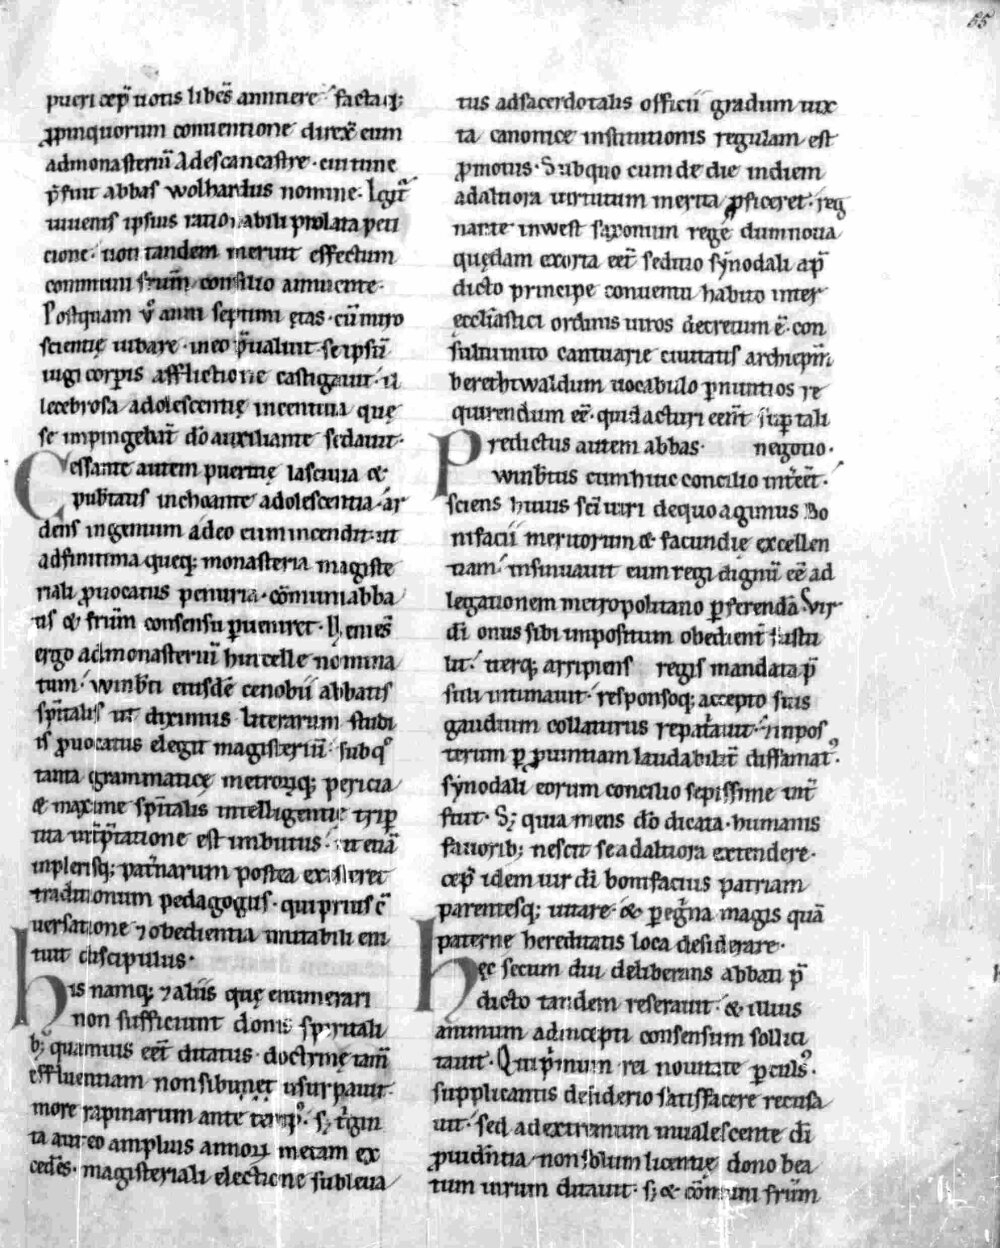 85
pueri cep̄ uotis libēs annuere. factaq;
ꝓpinquorum conuentione direx̄ eum
admonasteriū Adescancastre. cui tunc
p̄fuit abbas wolhardus nomine. Legit̄
iuuenis ipsius rationabili prolata peti
cione. non tandem meruit effectum
communi frūm consilio annuente.
Postquam ū anni septimi ętas. cū miro
scientię iubare. in eo p̄ualuit. se ipsū
iugi corꝑis afflictione castigauit. il
lecebrosa adolescentię incentiua quę
se impingebāt dō auxiliante sedauit.
Cessante autem pueritię lasciuia &
pubt̄atis inchoante adolescentia. ar
dens ingenium adeo eum incendit. ut
adfinitima queq; monasteria magiste
riali ꝓuocatus penuria. cōmuni abba
tis & frūm consensu ꝑueniret. Hemes̄
ergo admonasteriū hutcelle nomina
tum. winb̄ti eiusdē cenobii abbatis
sp̄italis ut diximus literarum studi
is ꝓuocatus elegit magisteriū. subq°
tanta grammaticę metrorūq; pericia
& maxime sp̄italis intelligentię triꝑ
tita int̄p̄tatione est imbutus. ut etiā
implensq; pat̄narum postea existeret
traditionum pedagogus. qui prius c̄
uersatione ⁊ obedientia imitabili eni
tuit discipulus.
His namq; ⁊ aliis quę enumerari
non sufficiunt donis spiritali
b; quamuis eēt ditatus. doctrinę tam̄
effluentiam non sibimet usurpauit.
more rapinarum ante temp°. s; t̄gin
ta autem eo amplius annoꝝ metam ex
cedēs. magisteriali electione subleua
tus adsacerdotalis officii gradum iux
ta canonicę institutionis regulam est
ꝓmotus. Sub quo cum de die in diem
adaltiora uirtutum merita ꝓficeret. reg
nante inwest saxonum rege dum noua
quędam exorta eēt seditio synodali ap̄
dicto principe conuentu habito inter
ęcclīastici ordinis uiros decretum ē. con
sultum ito cantuarię ciuitatis archiepm̄
berethtwaldum uocabulo ꝑ nuntios re
quirendum eē. quid acturi eēnt suꝑ tali
negotio.
Predictus autem abbas
winb̄tus cum huic concilio int̄eēt.
sciens huius sc̄i uiri de quo agimus Bo
nifacii meritorum & facundię excellen
tiam. insinuauit eum regi dignū eē ad
legationem metropolitano ꝑferendā. Vir
dī onus sibi impositum obedient̄ sustu
lit. iterq; arripiens regis mandata p̄
suli intimauit. responsoq; accepto suis
gaudium collaturus repat̄auit. inpos
terum ꝑ ꝓuintiam laudabilit̄ diffamat°.
synodali eorum concilio sepissime int̄
fuit. S; quia mens dō dicata. humanis
fauorib; nescit se adaltiora extendere.
cep̄ idem uir dī bonifacius patriam
parentesq; uitare. & ꝑegr̄na magis quā
paternę hereditatis loca desiderare.
Hęc secum diu deliberans abbati p̄
dicto tandem reserauit. & illius
animum adincepti consensum sollici
tauit. Qui p̄mum rei nouitate ꝑculs°.
supplicantis desiderio satisfacere recusa
uit. sed adextremum inualescente dī
ꝓuidn̄tia. non solum licentię dono bea
tum uirum ditauit. s; & cōmuni frūm